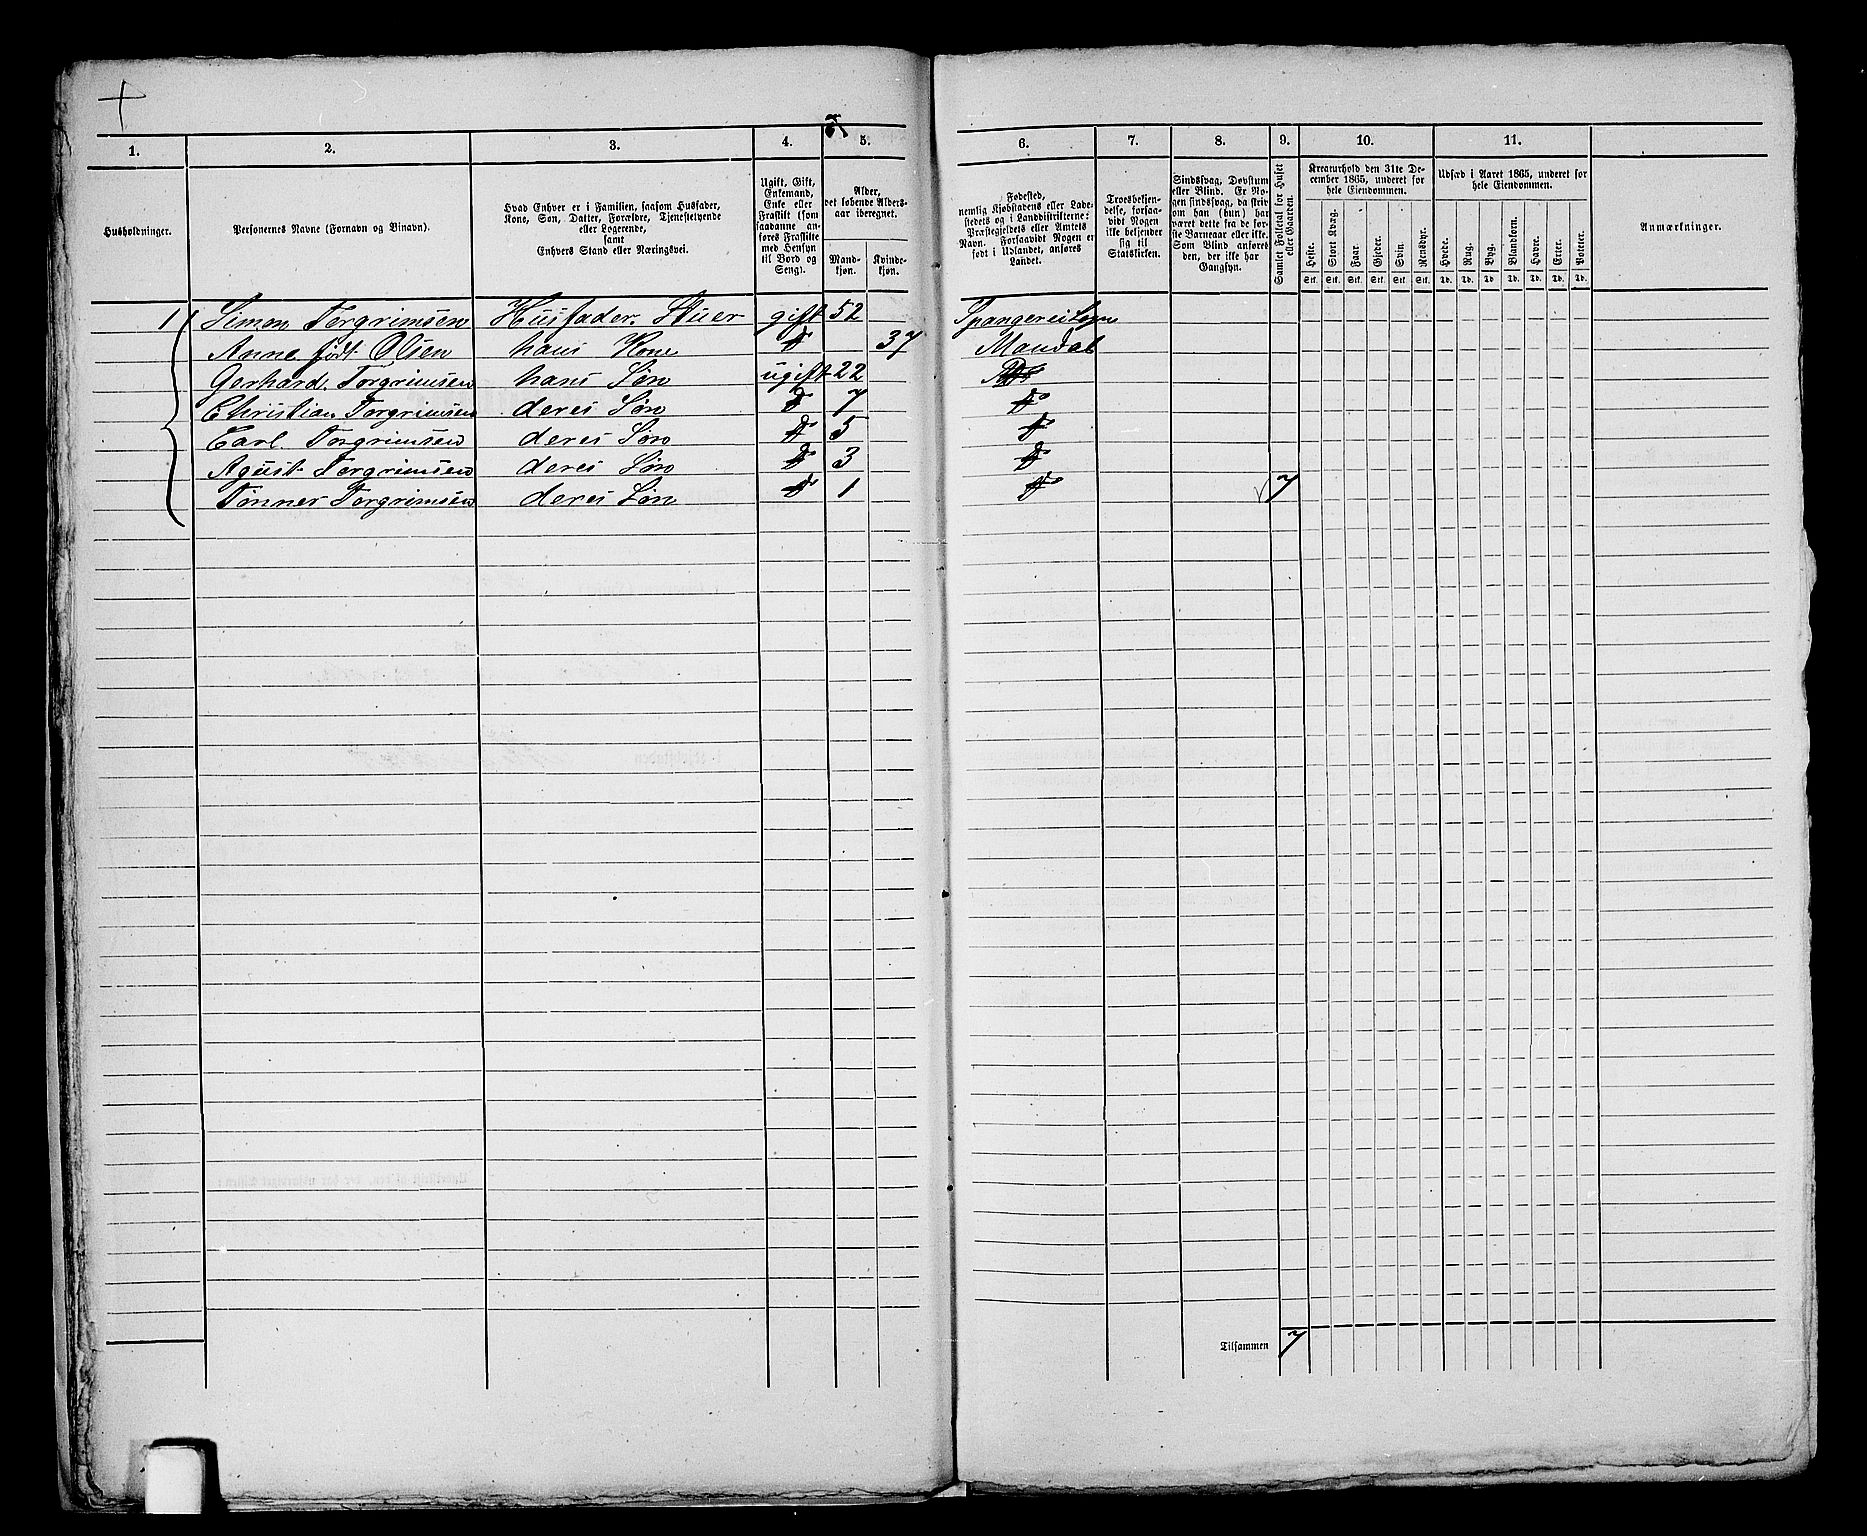 1. 2. 3. 4. 5. 6. 7. 8. 9. 10. 11.
Husholdninger.
Personernes Navne (Fornavn og Binavn).
Hvad Enhver er i Familien, saasom Husfader,
Kone, Søn, Datter, Forældre, Tjenestetyende
eller Logerende,
samt
Enhvers Stand eller Næringsvei.
Ugift, Gift,
Enkemand,
Enke eller
Fraskilt (som
saadanne an-
føres Fraskilte
med Hensyn
til Bord og
Seng).
Alder,
det løbende Alders-
aar iberegnet.
Mand-
kjøn.
Kvinde-
kjøn.
Fødested,
nemlig Kjøbstadens eller Lade-
stedets og i Landdistrikterne:
Præstegjeldets eller Amtets
Navn. Forsaavidt Nogen er
født i Udlandet, anføres
Landet.
Troesbekjen-
delse, forsaa-
vidt Nogen
ikke bekjender
sig til
Statskirken.
Sindssvag, Døvstum
eller Blind. Er No-
gen sindssvag, da skriv
om han (hun) har
været dette fra de før-
ste Barneaar eller ikke.
Som Blind anføres
den, der ikke har
Gangsyn.
Samlet Folketal for Huset
eller Gaarden.
Kreaturhold den 31te De-
cember 1865, underet for
hele Eiendommen.
Heste. Stort Kvæg. Faar. Gjeder. Svin. Rensdyr.
Stk. Stk. Stk. Stk. Stk. Stk.
Udsæd i Aaret 1865, underet for
hele Eiendommen.
Hvede. Rug. Byg. Blandkorn. Havre. Erter. Poteter.
Td. Td. Td. Td. Td. Td. Td.
Anmærkninger.
1 Simon Torgrimsen Husfader. Stuer gift 52
Anne født Olsen hans Kone D 37 Mandal
Gerhard Torgrimsen hans Søn ugift 22
Christian Torgrimsen deres Søn D 7 Do
Carl Torgrimsen deres Søn D 5 D
Agust Torgrimsen deres Søn D 3 Do
Tønner Torgrimsen deres Søn D 1 Do 7
Tilsammen 7